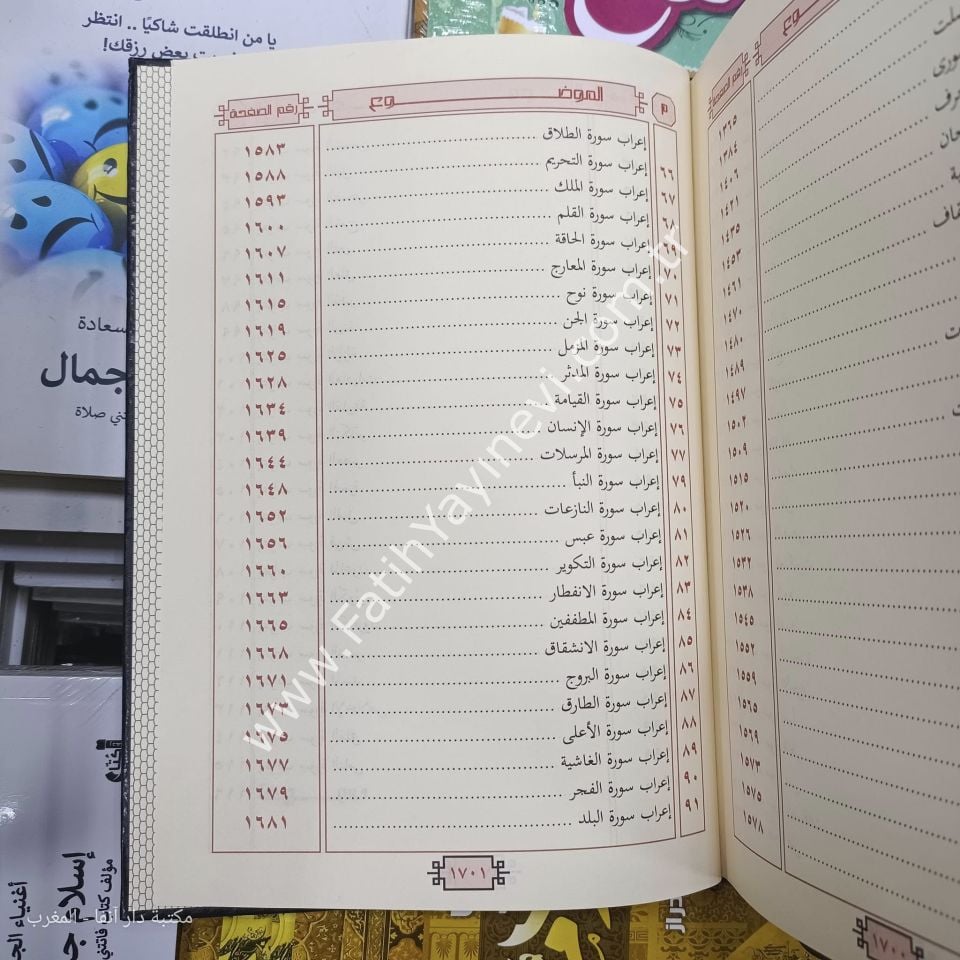 يا من انطلقت شاكيًا .. انتظر
بعض رزقك!
م الموضوع رقم الصفحة
إعراب سورة الطلاق ١٥٨٣
٦٦ إعراب سورة التحريم ١٥٨٨
٦٧ إعراب سورة الملك ١٥٩٣
٦٨ إعراب سورة القلم ١٦٠٠
٦٩ إعراب سورة الحاقة ١٦٠٧
٧٠ إعراب سورة المعارج ١٦١١
٧١ إعراب سورة نوح ١٦١٥
٧٢ إعراب سورة الجن ١٦١٩
٧٣ إعراب سورة المزمل ١٦٢٥
٧٤ إعراب سورة المدثر ١٦٢٨
٧٥ إعراب سورة القيامة ١٦٣٤
٧٦ إعراب سورة الإنسان ١٦٣٩
٧٧ إعراب سورة المرسلات ١٦٤٤
٧٩ إعراب سورة النبأ ١٦٤٨
٨٠ إعراب سورة النازعات ١٦٥٢
٨١ إعراب سورة عبس ١٦٥٦
٨٢ إعراب سورة التكوير ١٦٦٠
٨٣ إعراب سورة الانفطار ١٦٦٣
٨٤ إعراب سورة المطففين ١٦٦٥
٨٥ إعراب سورة الانشقاق ١٦٦٨
٨٦ إعراب سورة البروج ١٦٧١
٨٧ إعراب سورة الطارق
٨٨ إعراب سورة الأعلى ١٦٧٥
٨٩ إعراب سورة الغاشية ١٦٧٧
٩٠ إعراب سورة الفجر ١٦٧٩
٩١ إعراب سورة البلد ١٦٨١
١٧٠١
رقم الصفحة
١٣٦٥
١٣٨٤
١٤٠٦
١٤٢١
١٤٣٥
١٤٥٣
١٤٦١
١٤٧٠
١٤٨٠
١٤٨٩
١٤٩٧
١٥٠٢
١٥٠٩
١٥١٥
١٥٢٦
١٥٣٢
١٥٣٨
١٥٤٥
١٥٥٢
١٥٥٩
١٥٦٥
١٥٦٩
١٥٧٣
١٥٧٥
١٥٧٨
١٧٠٠
www.FatihYayinevi.com.tr
مكتبة دار آنفا - المغرب